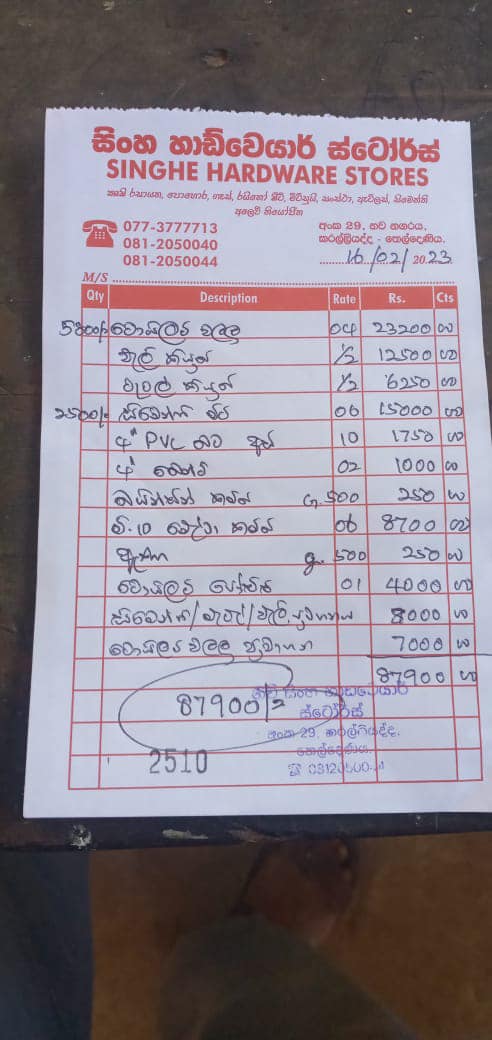 සිංහ හාඩ්වෙයාර් ස්ටෝර්ස්
SINGHE HARDWARE STORES
කෘෂි රසායන, පොහොර,
අලෙවි නියෝජිත
077-3777713
081-2050040
081-2050044
අංක 29, නව නගරය,
කරල්ලියද්ද - තෙල්දෙණිය.
16/02/2023
M/S
Qty Description Rate Rs. Cts
5800/- ටොයිලට් වලලු 04 23200 00
වැලි කියුබ් 1/2 12500 00
කියුබ් 1/2 6250 00
2500/- සිමෙන්ති 06 15000 00
4" PVC බට 10 1750 00
4" 02 1000 00
කම්බි G. 500 250 00
කම්බි 06 8700 00
ඇණ g. 500 250 00
ටොයිලට් 01 4000 00
සිමෙන්ති/ /වැලි ප්‍රවාහනය 8000 00
ටොයිලට් වලලු ප්‍රවාහන 7000 00
87900 00
87900/=
සිංහ හාඩ්වෙයාර්
ස්ටෝර්ස්
අංක 29, කරල්ලියද්ද,
තෙල්දෙණිය.
2510